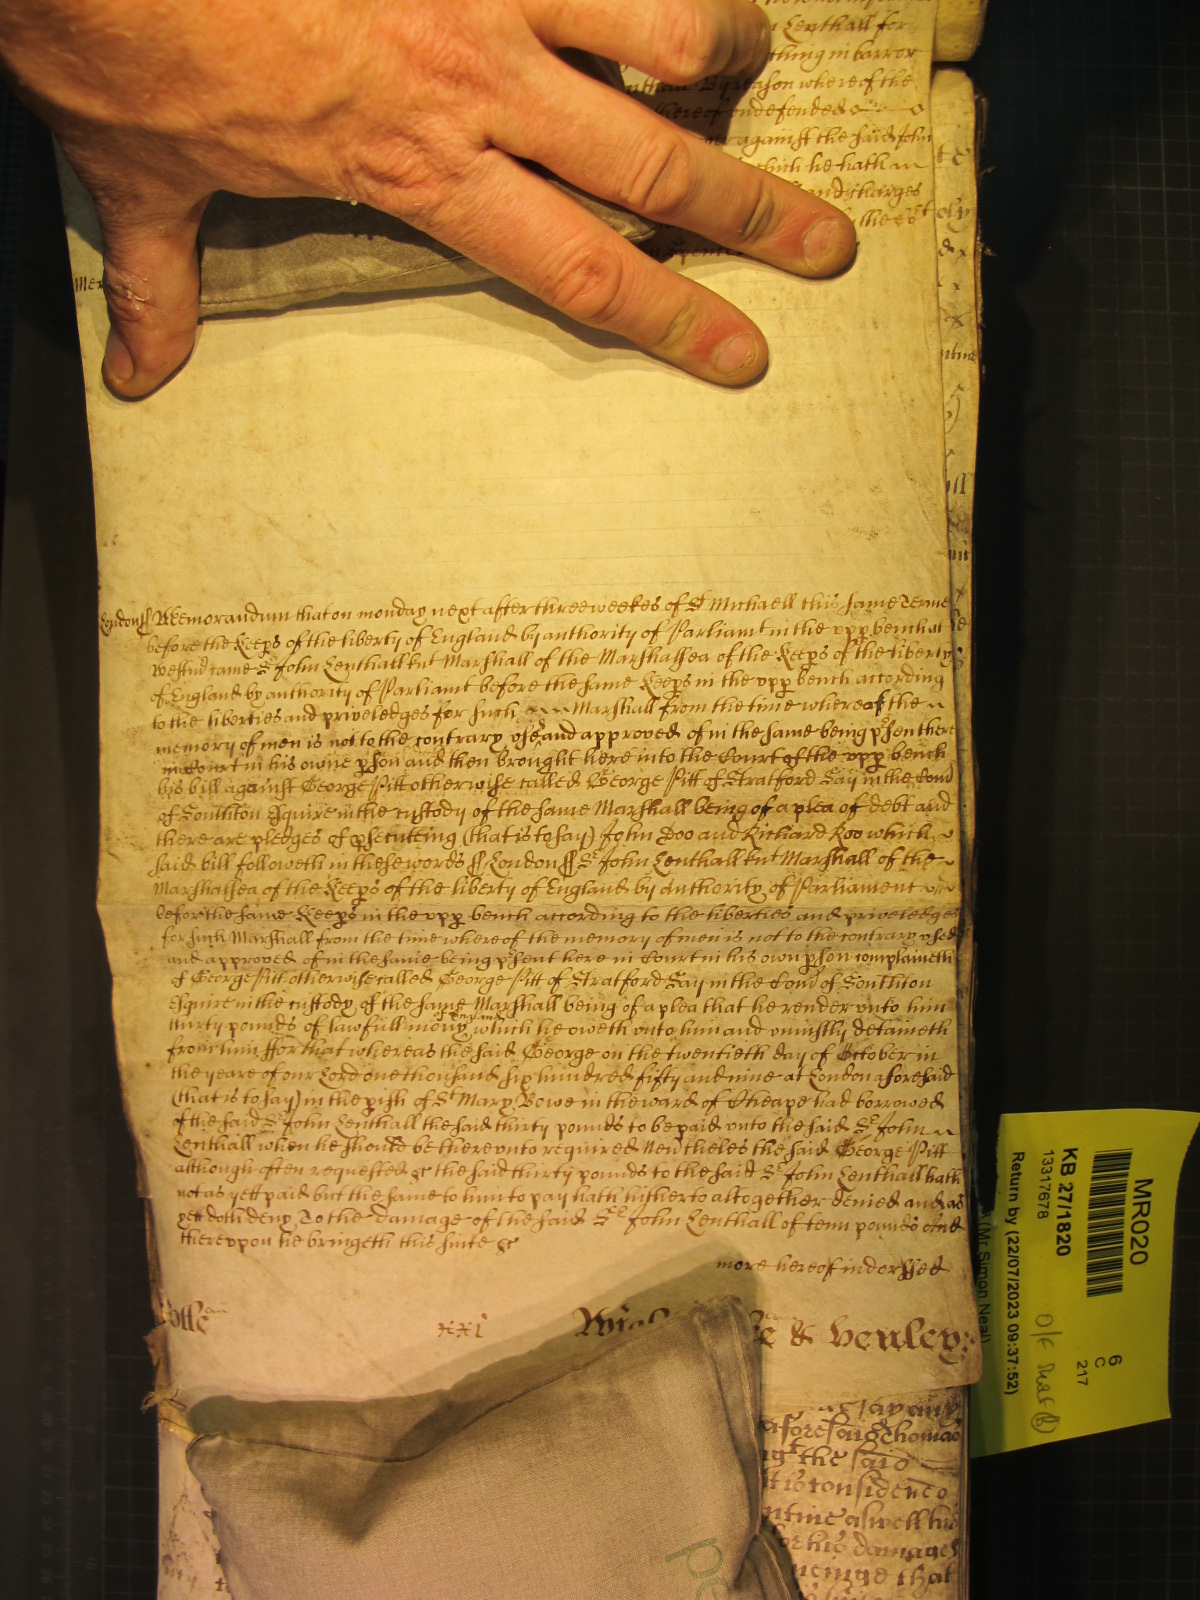 Lenthall for
thing in barr or
By reason whereof the
thereof undefended
against the said John
which he hath
and charges
the
Mem
London ss Memorandum that on monday next after three weekes of St Michaell this same Terme
before the Keeps of the liberty of England by authority of Parliamt in the upp bench at
Westm came Sr John Lenthall knt Marshall of the Marshallsea of the Keeps of the liberty
of England by authority of Parliamt before the same Keeps in the upp bench according
to the liberties and priveledges for such Marshall from the time whereof the
memory of men is not to the contrary used and approved of in the same being psent here
in Court in his owne pson and then brought here into the Court of the upp bench
his bill against George Pitt otherwise called George Pitt of Stratford Say in the Coud
of Southton Esquire in the custody of the same Marshall being of a plea of debt and
there are pledges of psecuteing (that is to say) John Doo and Richard Roo which
said bill followeth in these words ss London ss Sr John Lenthall knt Marshall of the
Marshallsea of the Keeps of the liberty of England by authority of Parliament
before the same Keeps in the upp bench according to the liberties and priveledges
for such Marshall from the time whereof the memory of men is not to the contrary used
and approved of in the same being psent here in Court in his own pson complaineth
of George Pitt otherwise called George Pitt of Stratford Say in the Coud of Southton
Esquire in the custody of the same Marshall being of a plea that he render unto him
thirty pounds of lawfull mony which he oweth unto him and uniustly detaineth
from him ffor that whereas the said George on the twentieth day of October in
the yeare of our Lord one thousand six hundred fifty and nine at London aforesaid
(that is to say) in the pish of St Mary Bowe in the ward of Cheape had borrowed
of the said Sr John Lenthall the said thirty pounds to be paid unto the said Sr John
Lenthall when he should be thereunto required Neutheles the said George Pitt
although often requested &c the said thirty pounds to the said Sr John Lenthall hath
not as yett paid but the same to him to pay hath hitherto altogether denied and as
yett doth deny To the damage of the said Sr John Lenthall of tenn pounds And
thereupon he bringeth this suite &c
more hereof indorssed
xxi
& Henley
as say any
aforesaid Thomas
the said
is considered
aswell his
for his damages
that
MR020
KB 27/1820
13317678
6
C
217
Return by (22/07/2023 09:37:52)
(Mr Simon Neal)